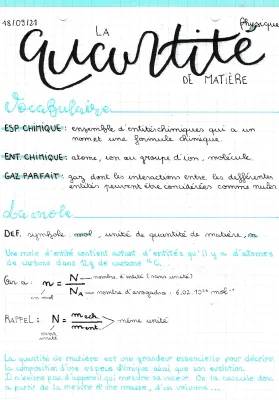 18/09/21
Physique
LA
quantité
DE MATIÈRE
Vocabulaire
ESP CHIMIQUE : ensemble d'entités chimiques qui a un
nom et une formule chimique.
ENT. CHIMIQUE : atome, ion ou groupe d'ion, molécule.
GAZ PARFAIT : gaz dont les interactions entre les différentes
entités peuvent être considérées comme nulles
La mole
DEF. symbole mol, unité de quantité de matière, n
Une mole d'entité contient autant d'entités qu'il y a d'atomes
de carbone dans 12g de carbone ¹²C.
On a : n = N / NA
nombre d'entité (sans unité)
nombre d'avogadro : 6,02.10²³ mol⁻¹
en mol
RAPPEL : N = m ech / m ent.
même unité
sans unité
La quantité de matière est une grandeur essentielle pour décrire
la composition d'une espèce chimique ainsi que son évolution.
Il n'existe pas d'appareil qui mesure sa valeur. On la calcule donc
a partir de la mesure d'une masse, d'un volume ...